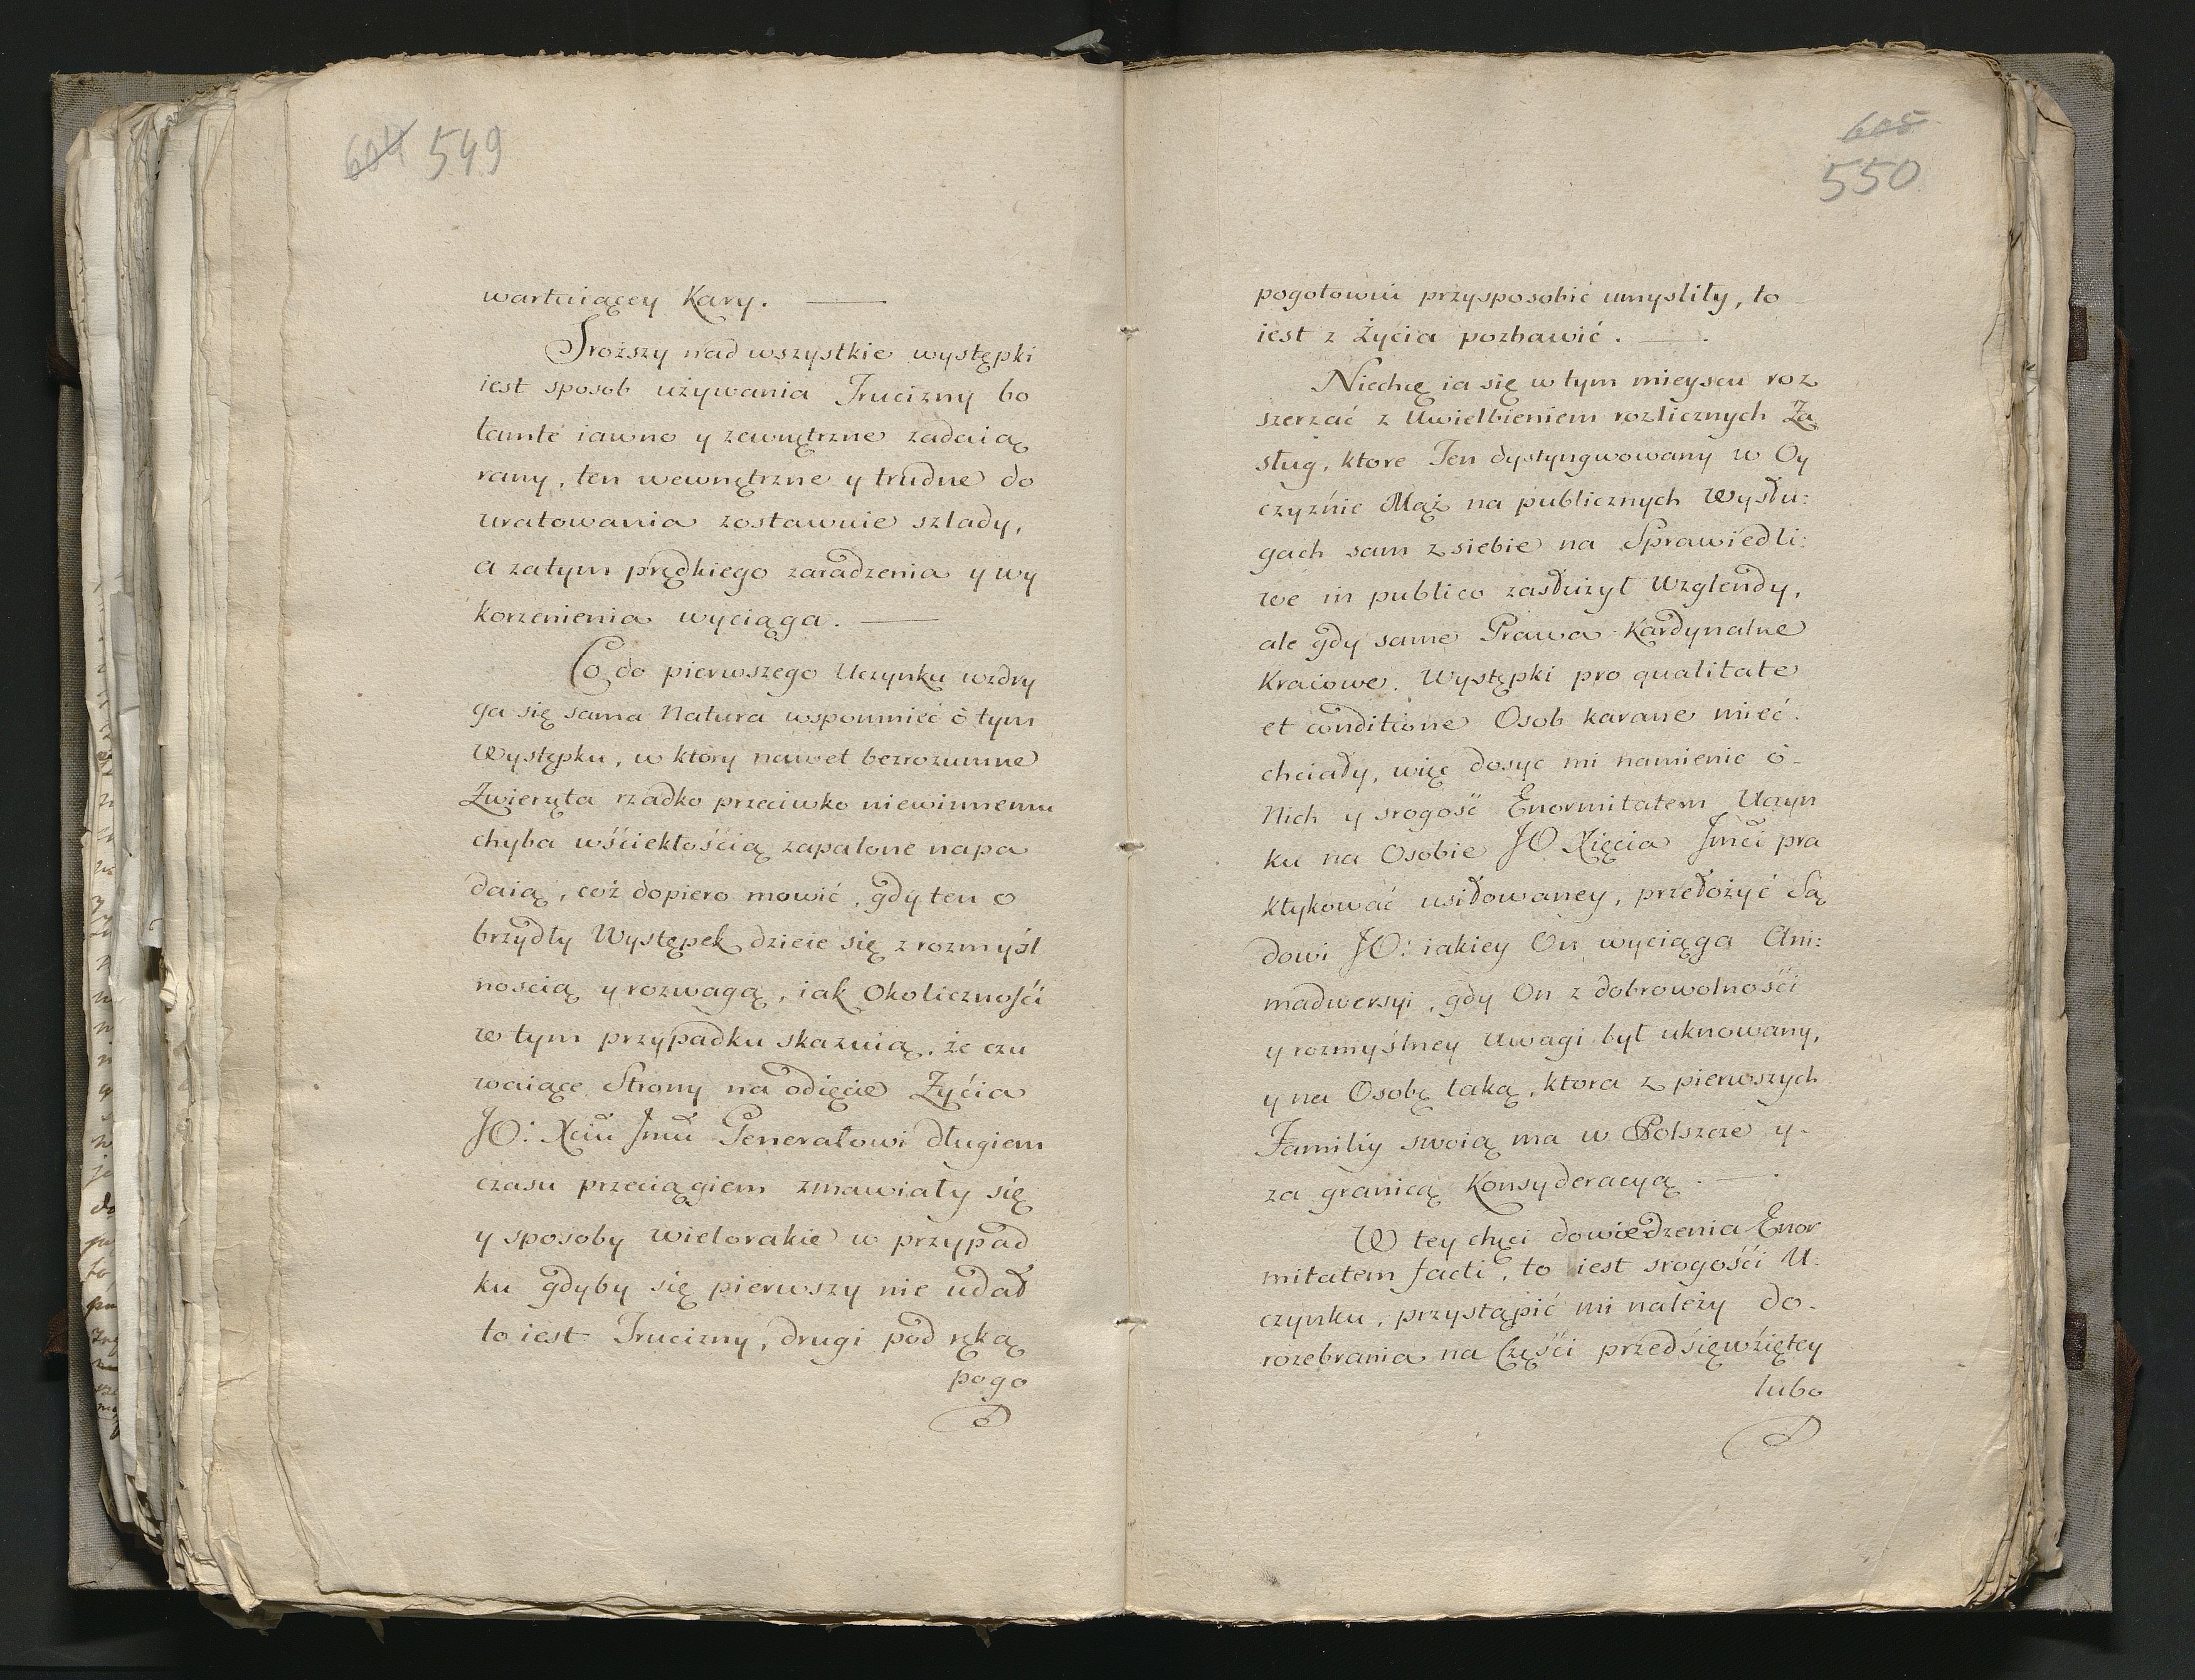 604 549
wartaiącey Kary. —
Sroższy nad wszystkie występki
iest sposob używania Trucizny bo
tamte iawno y zewnętrzne zadaią
rany, ten wewnętrzne y trudne do
uratowania zostawuie szlady,
a zatym prędkiego zaradzenia y wy
korzenienia wyciąga. —
Co do pierwszego Uczynku wzdry
ga się sama Natura wspomnieć ò tym
Występku, w ktory nawet bezrozumne
Zwierzęta rzadko przeciwko niewinnemu
chyba wściekłością zapalone napa
daią, coż dopiero mowić, gdy ten o
brzydły Występek dzieie się z rozmyśl
nością y rozwagą, iak Okolicznośći
w tym przypadku skazuią, że czu
waiące Strony na odięcie Żyćia
JO: Xciu Jmci Generałowi długiem
czasu przeciągiem zmawiały się
y sposoby wielorakie w przypad
ku gdyby się pierwszy nie udał
to iest Trucizny, drugi pod ręką
pogo
605
550
pogotowiu przysposobić umysliły, to
iest z Życia pozbawić. —
Niechcę ia się w tym mieyscu roz
szerzać z Uwielbieniem rozlicznych Za
sług, ktore Ten dystyngwowany w Oy
czyźnie Mąż na publicznych Wysłu:
gach sam z siebie na Sprawiedli:
we in publico zasłużył Wzglendy,
ale gdy same Prawa Kardynalne
Kraiowe. Występki pro qualitate
et conditione Osob karane mieć.
chciały, więc dosyc mi namienic ò
Nich y srogość Enormitatem Uczyn
ku na Osobie JO Xięcia Jmći pra
ktykować usiłowaney, przełożyć Są
dowi JO: iakiey On wyciąga Ani:
madwersyi, gdy On z dobrowolnośći
y rozmyślney Uwagi był uknowany,
y na Osobę taką, ktora z pierwszych
Familiy swoią ma w Polszcze y
za granicą Konsyderacyą. —
W tey chęci dowiedzenia Enor
mitatem facti, to iest srogośći U:
czynku, przystąpić mi należy do
rozebrania na Częśći przedśięwźiętey
lubo